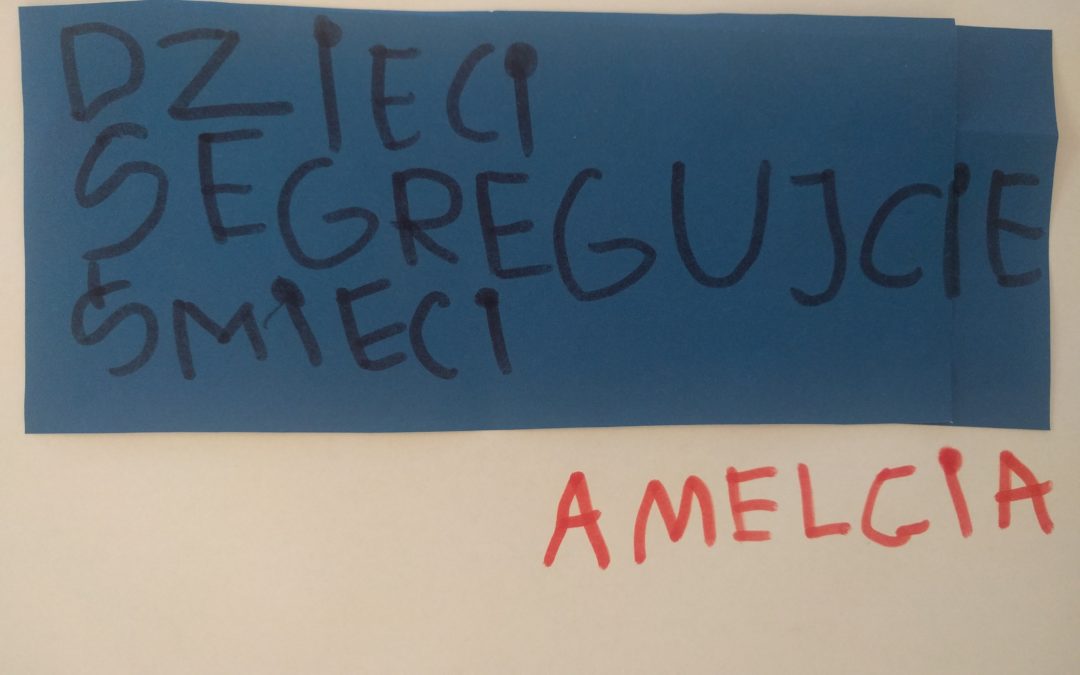 DZIECI
SEGREGUJCIE
ŚMIECI
AMELCIA